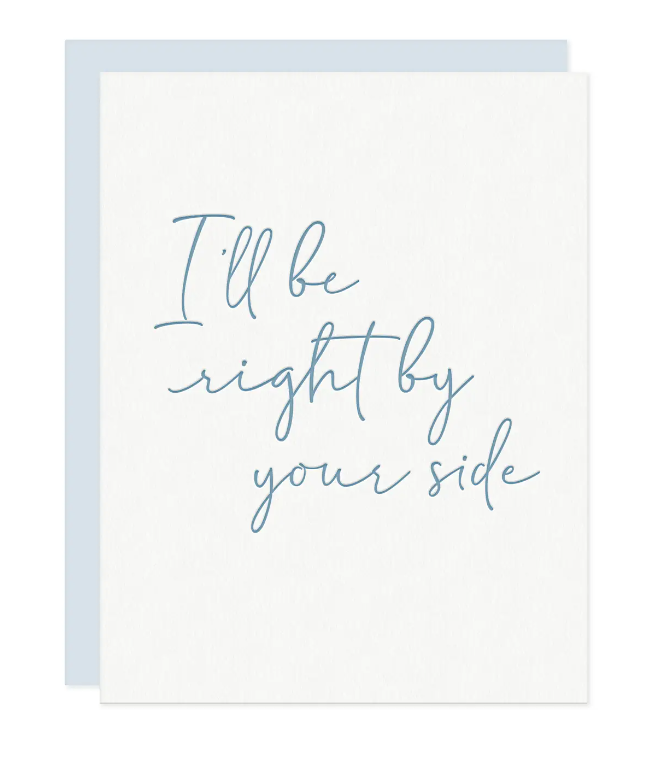 I'll be
right by
your side